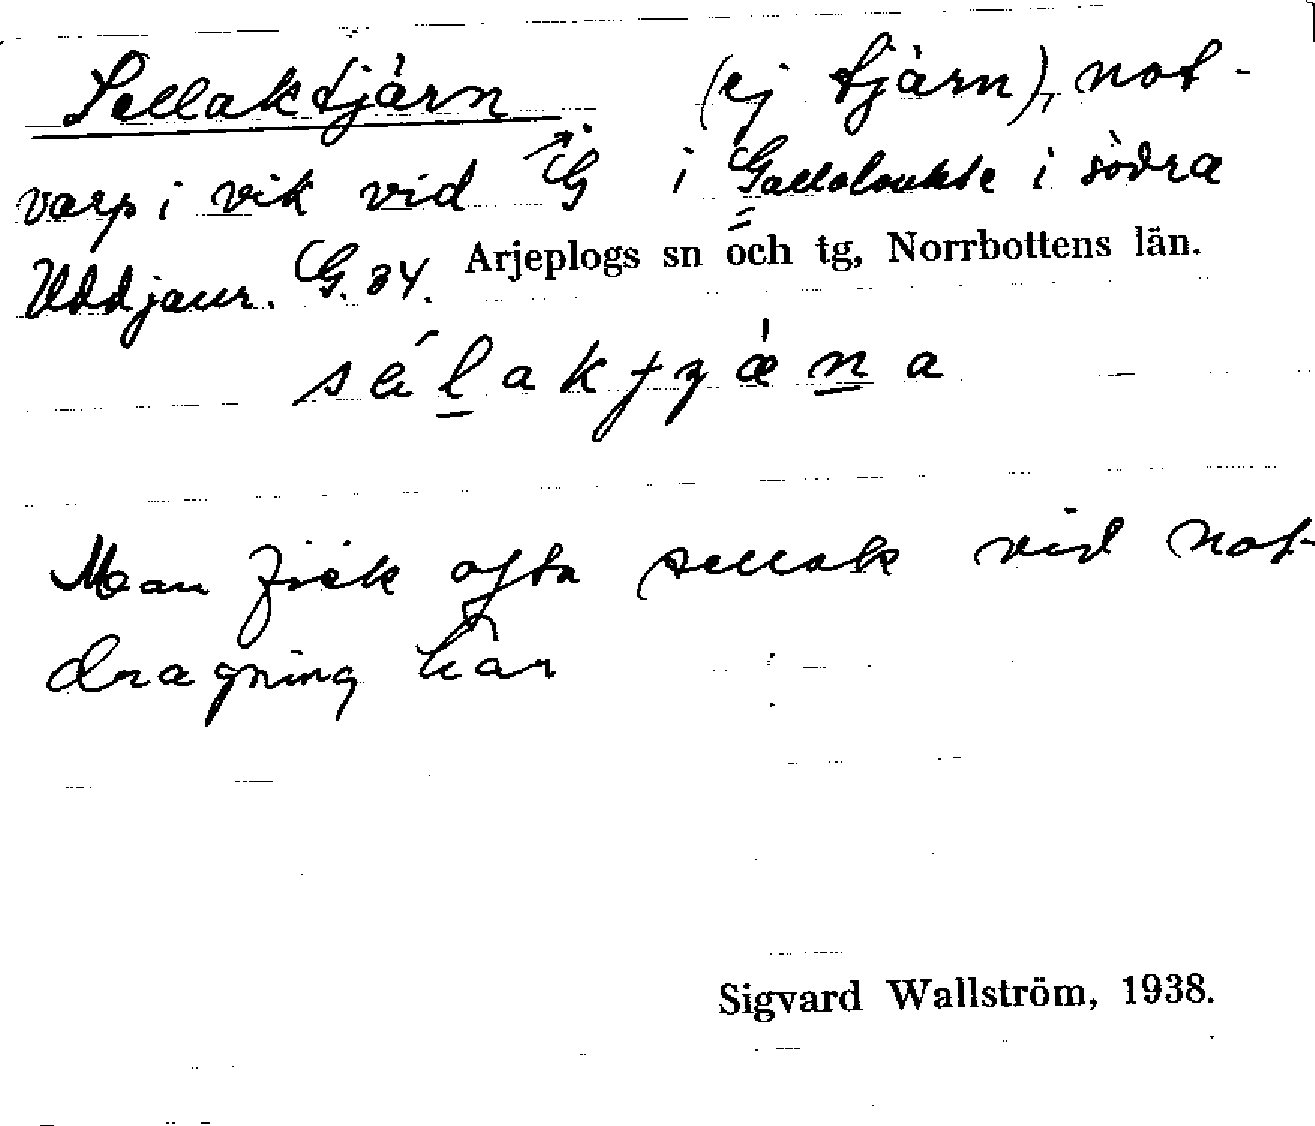 Sellaktjärn (ej tjärn), not-
varp i vik vid G i Galloloukte i södra
Uddjaur. G. 34. Arjeplogs sn och tg, Norrbottens län.
Man fick ofta sellak vid not-
dragning här
Sigvard Wallström, 1938.